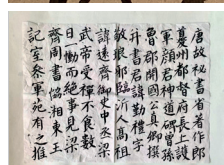 唐故秘書省著作郎
夔州都督府長上護
軍顏君神道碑曾孫
魯郡開國公真卿撰
并書君諱勤禮字
敬琅耶臨沂人高祖
諱見遠齊御史中丞梁
武帝受禪不食數
日一慟而絕事見梁
齊周書協湘東王
記室參軍苑有之推